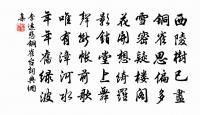 西陵樹已盡
銅雀思偏多
雪密疑樓閣
花開想綺羅
影銷堂上舞
聲斷帳前歌
唯有漳河水
年年舊綠波
李遠悲銅雀臺
集